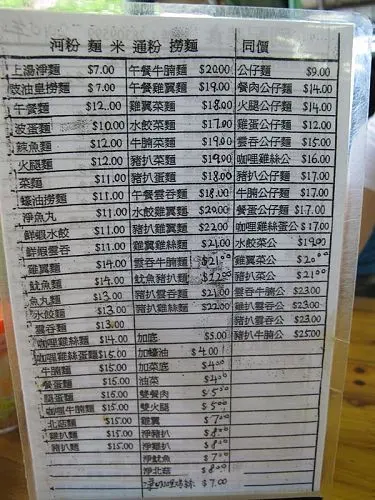 河粉 麵 米 通粉 撈麵 同價
上湯淨麵 $7.00
豉油皇撈麵 $7.00
午餐麵 $12.00
波蛋麵 $10.00
辣魚麵 $12.00
火腿麵 $12.00
菜麵 $11.00
蠔油撈麵 $11.00
淨魚丸 $11.00
鮮蝦水餃 $11.00
鮮蝦雲吞 $11.00
雞翼麵 $14.00
魷魚麵 $14.00
魚丸麵 $13.00
水餃麵 $13.00
雲吞麵 $13.00
咖哩雞絲麵 $14.00
咖哩雞絲蛋麵 $15.00
牛腩麵 $15.00
餐蛋麵 $15.00
腿蛋麵 $15.00
咖哩牛腩麵 $15.00
北菇麵 $15.00
雞扒麵 $15.00
豬扒麵 $15.00
午餐牛腩麵 $20.00
午餐雞翼麵 $19.00
雞翼菜麵 $18.00
水餃菜麵 $17.00
牛腩菜麵 $19.00
豬扒菜麵 $19.00
豬扒蛋麵 $18.00
午餐雲吞麵 $18.00
水餃雞翼麵 $20.00
豬扒雞翼麵 $22.00
雞翼雞絲麵 $21.00
雲吞牛腩麵 $21.00
魷魚豬扒麵 $22.00
豬扒雲吞麵 $21.00
豬扒雞絲麵 $22.00
加底 $5.00
加蠔油 $4.00
加菜底 $4.00
油菜
雙餐肉 $5.00
雙火腿 $5.00
雞翼 $7.00
淨豬扒 $8.00
淨雞扒 $8.00
淨魷魚 $7.00
淨北菇 $8.00
$7.00
公仔麵 $9.00
餐肉公仔麵 $14.00
火腿公仔麵 $14.00
雞蛋公仔麵 $12.00
雲吞公仔麵 $15.00
咖哩雞絲公 $16.00
豬扒公仔麵 $17.00
牛腩公仔麵 $17.00
餐蛋公仔麵 $17.00
咖哩雞絲蛋公 $17.00
水餃菜公 $19.00
雞翼菜公 $20.00
豬扒菜公 $21.00
雲吞牛腩公 $23.00
雞翼雲吞公 $23.00
豬扒雲吞公 $23.00
豬扒牛腩公 $25.00